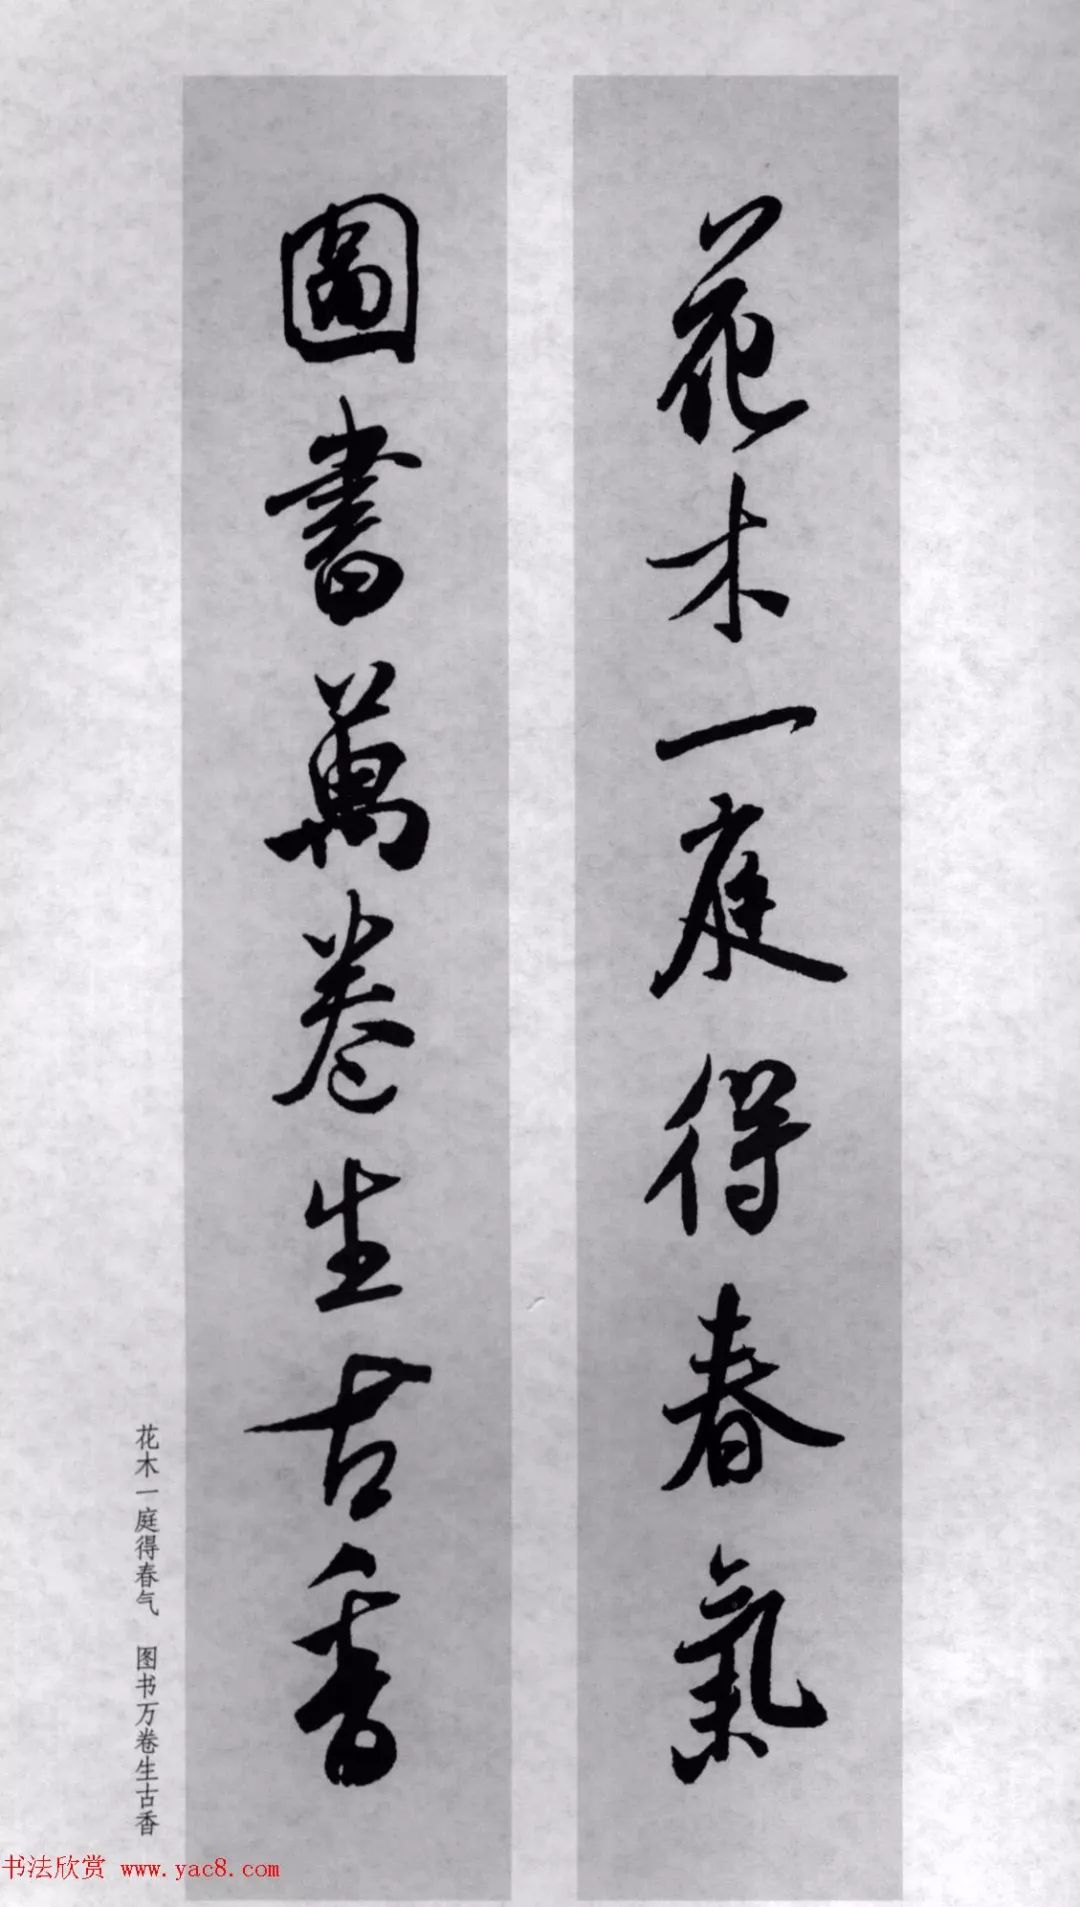 花木一庭得春氣
圖書萬卷生古香
花木一庭得春气　图书万卷生古香
书法欣赏 www.yac8.com